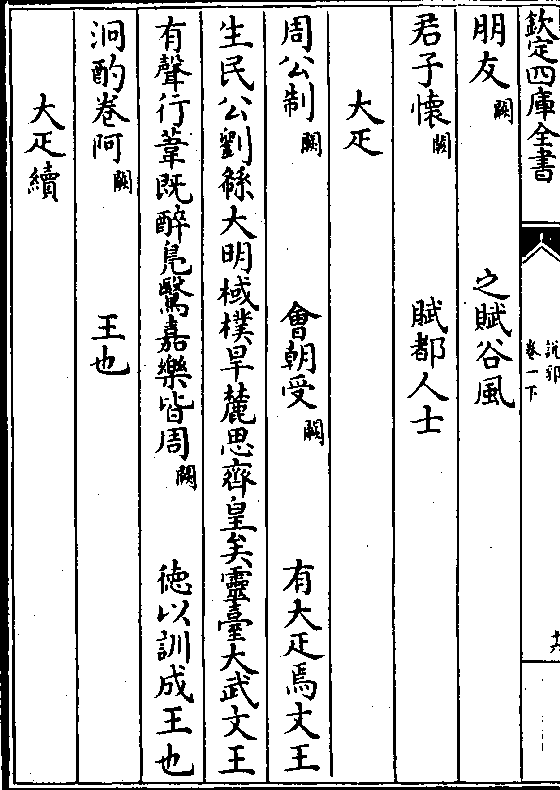 欽定四庫全書
說郛
卷一下
朋友 闕 之賦谷風
君子懷 闕 賦都人士
大疋
周公制 闕 會朝受 闕 有大疋焉文王
生民公劉緜大明棫樸旱麓思齊皇矣靈臺大武文王
有聲行葦既醉鳧鷖嘉樂皆周 闕 德以訓成王也
泂酌卷阿 闕 王也
大疋續